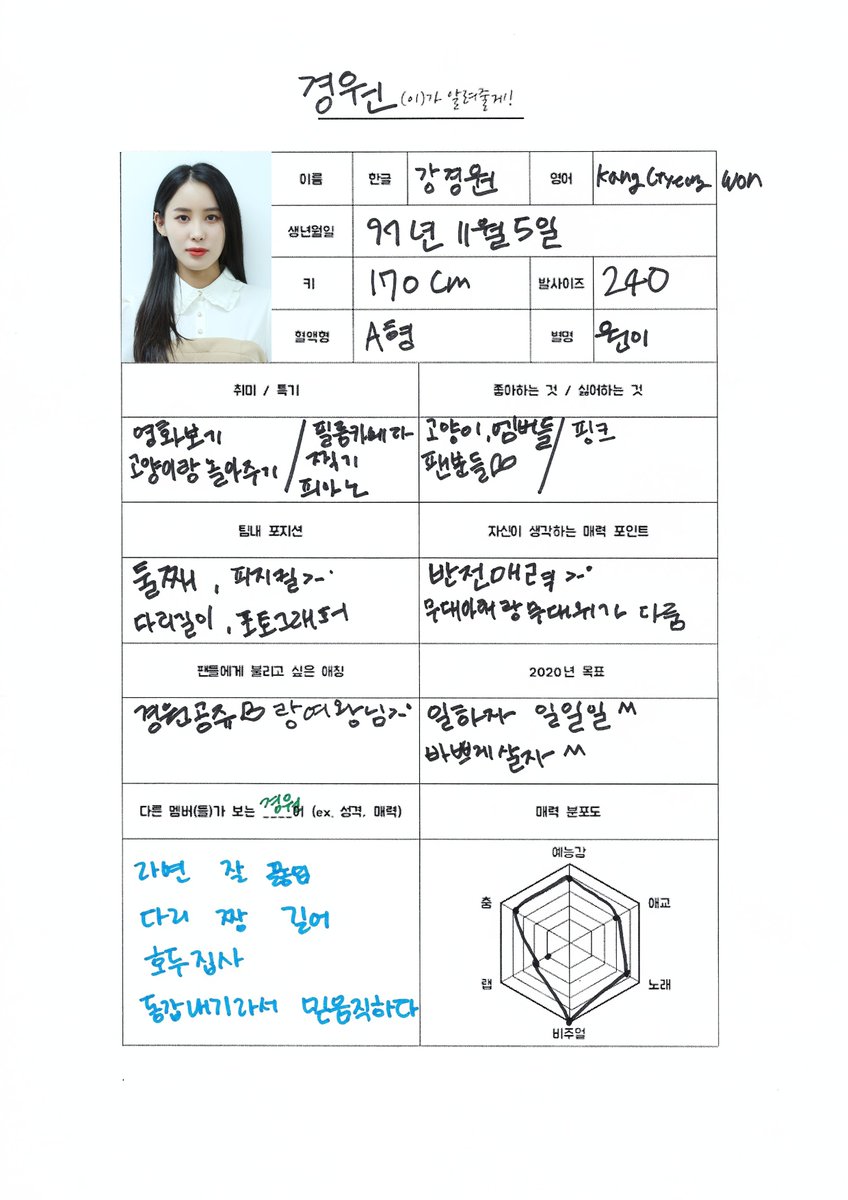 경원 (이)가 알려줄게!
이름 한글 강경원 영어 Kang Gyeong won
생년월일 97년 11월 5일
키 170 cm 발사이즈 240
혈액형 A형 별명 원이
취미 / 특기
영화보기
고양이랑 놀아주기
/
필름카메라
찍기
피아노
좋아하는 것 / 싫어하는 것
고양이, 멤버들
팬분들
/ 핑크
팀내 포지션
둘째, 피지컬
다리길이, 포토그래퍼
자신이 생각하는 매력 포인트
반전매력
무대아래랑 무대위가 다룸
팬들에게 불리고 싶은 애칭
경원공쥬 랑 여왕님
2020년 목표
일하자 일일일 ^^
바쁘게 살자 ^^
다른 멤버(들)가 보는 경원 (ex. 성격, 매력)
라면 잘
다리 짱 길어
호두집사
동갑내기라서 믿음직하다
매력 분포도
예능감
춤 애교
랩 노래
비주얼